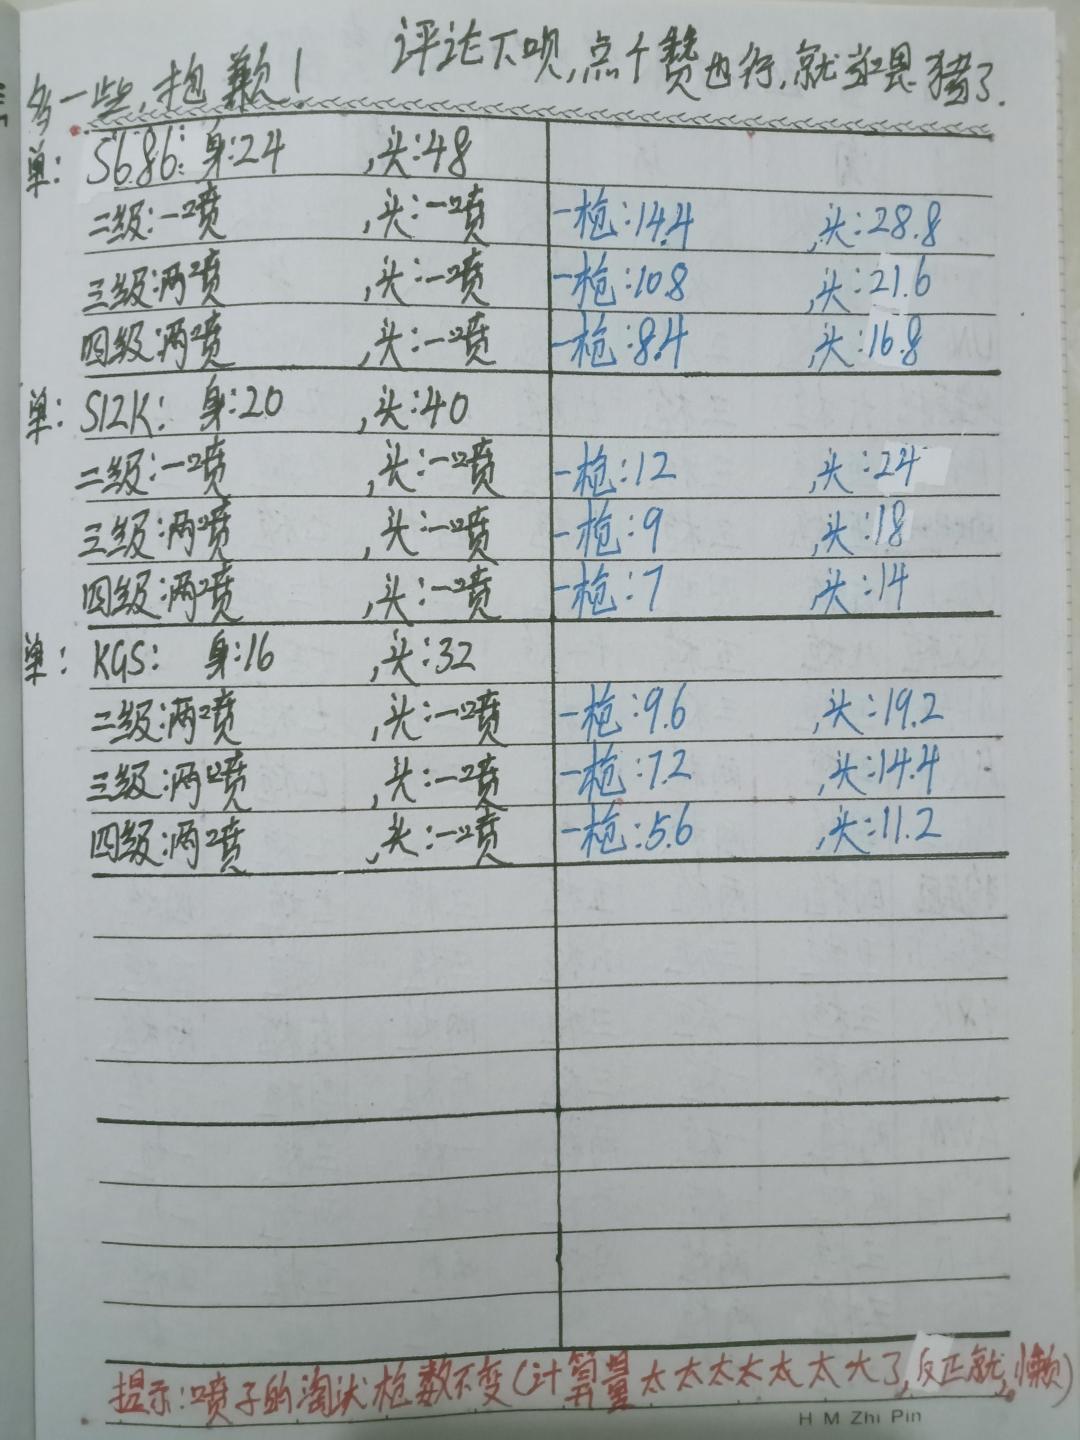 评论下呗,点个赞也行,就当喂猪了.
多一些,抱歉!
单: S686: 身:24 ,头:48
二级:一喷 ,头:一喷 一枪:14.4 ,头:28.8
三级:两喷 ,头:一喷 一枪:10.8 ,头:21.6
四级:两喷 ,头:一喷 一枪:8.4 ,头:16.8
单: S12K: 身:20 ,头:40
二级:一喷 ,头:一喷 一枪:12 ,头:24
三级:两喷 ,头:一喷 一枪:9 ,头:18
四级:两喷 ,头:一喷 一枪:7 ,头:14
单: KGS: 身:16 ,头:32
二级:两喷 ,头:一喷 一枪:9.6 ,头:19.2
三级:两喷 ,头:一喷 一枪:7.2 ,头:14.4
四级:两喷 ,头:一喷 一枪:5.6 ,头:11.2
提示:喷子的淘汰枪数不变(计算量太太太太太太大了,反正就,懒)
H M Zhi Pin